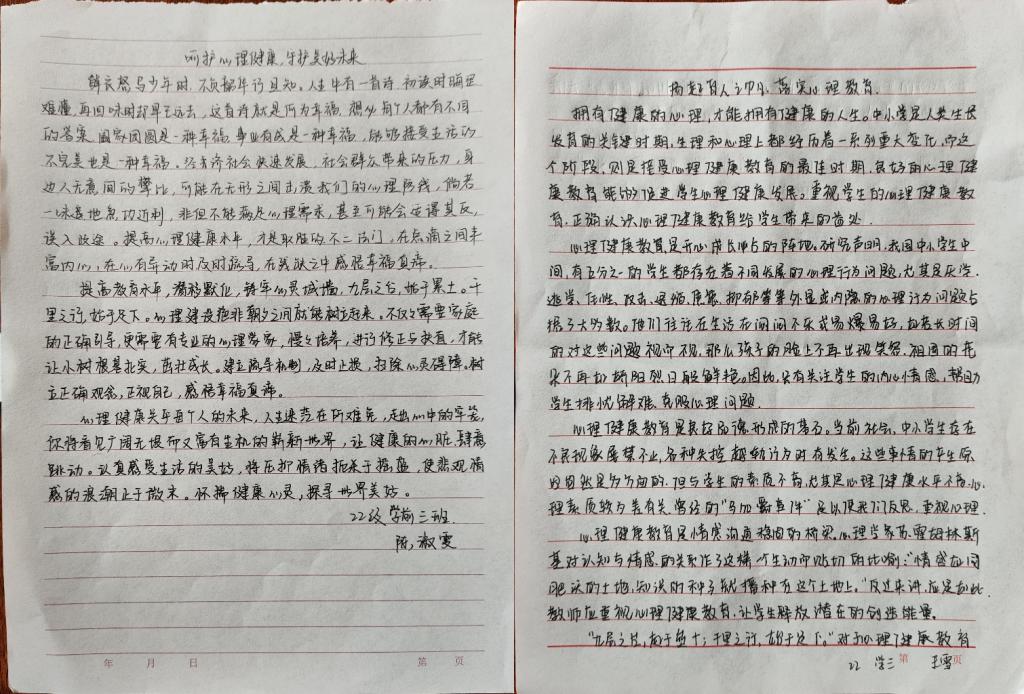 呵护心理健康，守护美好未来
韶衣怒马少年时，不负韶华行且知。人生中有一首诗，初读时晦涩
难懂，再回味时却早走远去，这首诗就是何为幸福。想必每个人都有不同
的答案，阖家团圆是一种幸福，事业有成是一种幸福，能够接受生活的
不完美也是一种幸福。经济社会快速发展，社会群众带来的压力，身
边人无意间的攀比，可能在无形之间击溃我们的心理防线，倘若
一味盲地急功近利，非但不能满足心理需求，甚至可能会适得其反，
误入歧途。提高心理健康水平，才是取胜的不二法门，在点滴之间丰
富内心，在心有车动时及时疏导，在残缺之中感悟幸福真谛。
提高教育水平，潜移默化，铸牢心灵城墙，九层之台，始于累土。千
里之行，始于足下。心理建设绝非朝夕之间就能树立起来，不仅需要家庭
的正确引导，更需要有专业的心理专家，慢慢培养，进行修正与扶直，才能
让小树根基扎实，茁壮成长。建立疏导机制，及时止损，扫除心灵碍障。树
立正确观念，正视自己，感悟幸福真谛。
心理健康关乎每个人的未来，人生迷茫在所难免，走出心中的牢笼，
你将看见广阔无垠而又富有生机的崭新世界，让健康的心脏肆意
跳动。认真感受生活的美好，将压抑情绪扼杀于摇篮，使悲观情
感的浪潮止于微末。怀揣健康心灵，探寻世界美好。
22级学前三班
陈淑雯
年 月 日
第 页
扬起育人之帆，落实心理教育。
拥有健康的心理，才能拥有健康的人生。中小学是人类生长
发育的关键时期，生理和心理上都经历着一系列重大变化，而这
个阶段，则是接受心理健康教育的最佳时期，良好的心理健
康教育能够促进学生心理健康发展。重视学生的心理健康教
育，正确认识心理健康教育给学生带来的益处。
心理健康教育是开心成长中占的阵地。研究声明，我国中小学生中
间，有五分之一的学生都存在着不同发展的心理行为问题，尤其是厌学、
逃学、任性、攻击、退缩、焦虑、抑郁等等外显或内隐的心理行为问题占
据了大多数。他们往往在生活在闷闷不乐或易爆易怒，如若长时间
的对这些问题视而不视，那么孩子的脸上不再出现笑容，祖国的花
朵不再如骄阳烈日般鲜艳。因此，只有关注学生的内心情感，帮助
学生排忧解难，克服心理问题。
心理健康教育是良好品德形成的基石。当前社会，中小学生存在
不良现象屡禁不止，各种失控越轨行为时有发生。这些事情的产生原
因固然是多方面的，但与学生的素质不高，尤其是心理健康水平不高，心
理素质较差有关，曾经的“马加爵事件”足以使我们反思，重视心理。
心理健康教育是情感沟通稳固的桥梁。心理学家苏霍姆林斯
基对认知与情感的关系作了这样一个生动而贴切的比喻：“情感如同
肥沃的土地，知识的种子就播种在这个土地上。”反过来讲，应是如此
教师应重视心理健康教育，让学生解放潜在的创造能量。
“九层之台，起于垒土；千里之行，始于足下。”对于心理健康教育
22 学三 第 王雪 页